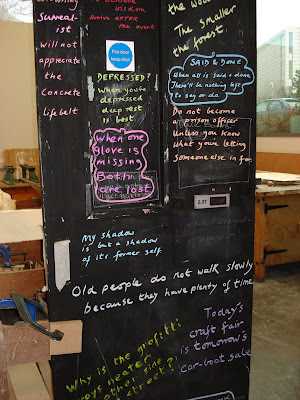 Surreal-
ist
will not
appreciate
the
concrete
lifebelt
to achieve
wisdom
Arrive AFTER
the event
Fire door
keep shut
DEPRESSED?
When you're
depressed
deep rest
is best
When one
Glove is
missing
Both
are lost
The smaller
the forest.
SAID & DONE
When all is said & done
There'll be nothing left
to say or do
Do not become
a prison officer
Unless you know
what you're letting
someone else in for
My shadow
is but a shadow
of its former self
Old people do not walk slowly
because they have plenty of time
Why is the graffiti
other side
street?
Today's
craft fair
is tomorrow's
car-boot sale